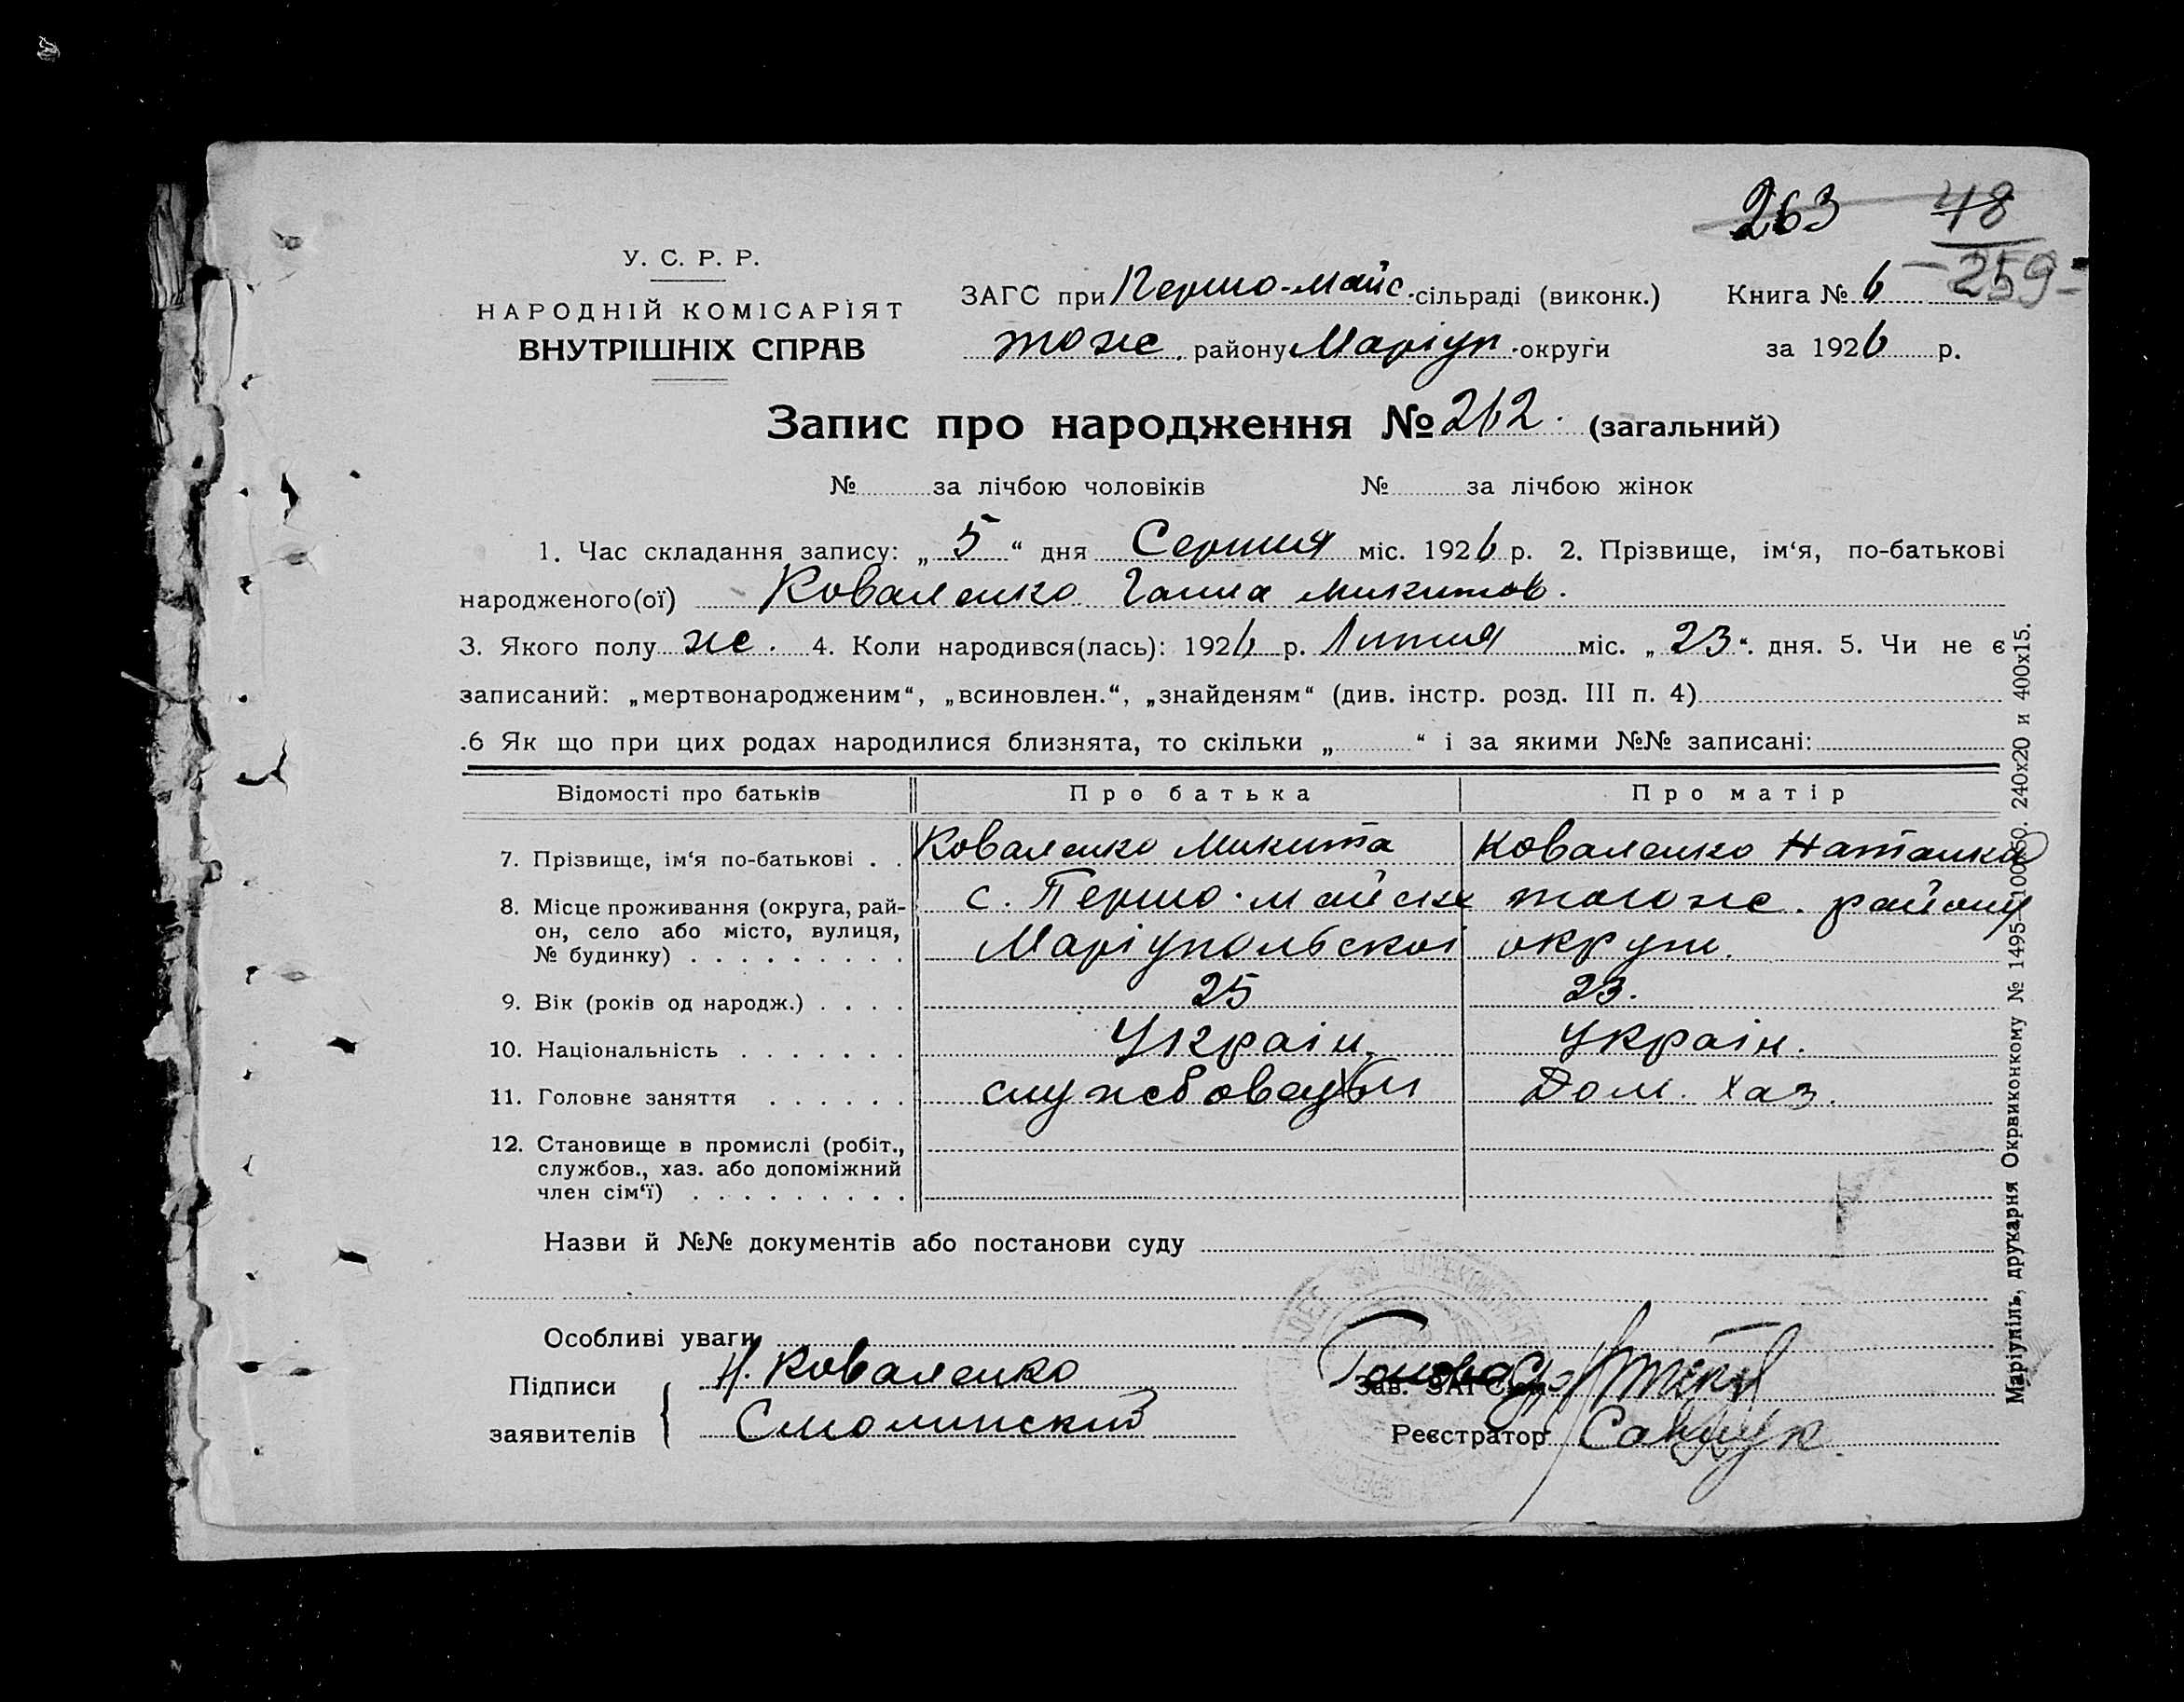 263 48
259
У. С. Р. Р.
НАРОДНІЙ КОМІСАРІЯТ
ВНУТРІШНІХ СПРАВ
ЗАГС при Першо-майс. сільраді (виконк.) Книга № 6
тож. району Маріуп. округи за 1926 р.
Запис про народження № 262. (загальний)
№ за лічбою чоловіків № за лічбою жінок
1. Час складання запису: „5“ дня Серпня міс. 1926 р. 2. Прізвище, ім‘я, по-батькові
народженого(ої) Коваленко Ганна Микитов.
3. Якого полу ж. 4. Коли народився(лась): 1926 р. Липня міс. „23“. дня. 5. Чи не є
записаний: „мертвонародженим“, „всиновлен.“, „знайденям“ (див. інстр. розд. III п. 4)
.6 Як що при цих родах народилися близнята, то скільки „ “ і за якими №№ записані:
Відомості про батьків Про батька Про матір
7. Прізвище, ім‘я по-батькові . . Коваленко Микита Коваленко Наталка
8. Місце проживання (округа, рай- с. Першо-майськ тогож. району
он, село або місто, вулиця,
№ будинку) . . . . . . . . . Маріупольскоі округи.
9. Вік (років од народж.) . . . . 25 23.
10. Національність . . . . . . . Украін. Украін.
11. Головне заняття . . . . . . службовець Дом. хаз.
12. Становище в промислі (робіт.,
службов., хаз. або допоміжний
член сім‘ї) . . . . . . . . .
Назви й №№ документів або постанови суду
Особливі уваги
Підписи Н. Коваленко Зав. ЗАГСом
заявителів Смолинский Реєстратор Савчук.
Маріупіль, друкарня Окрвиконкому № 1495—10050. 240х20 и 400х15.